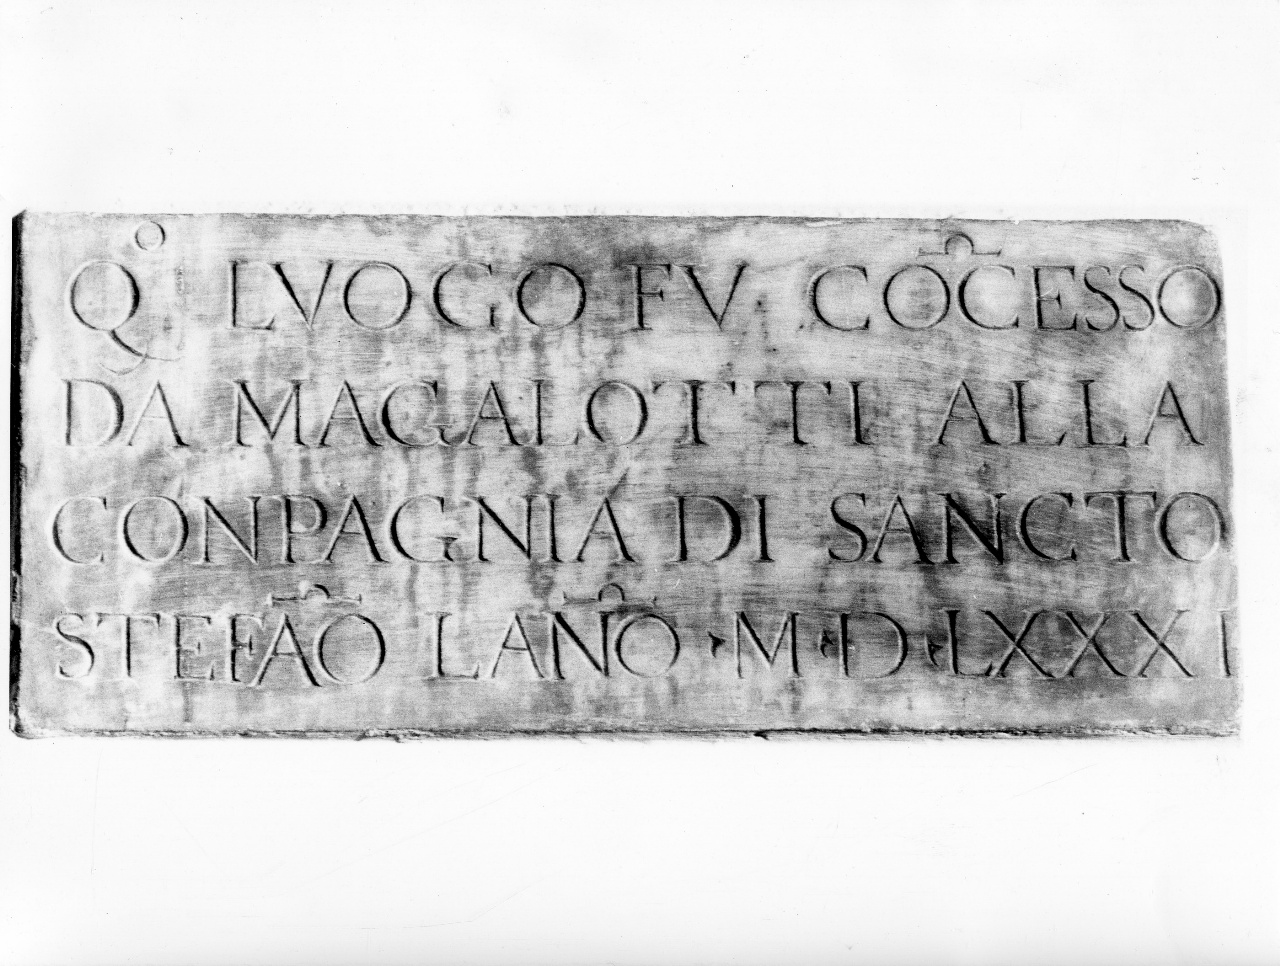 Qº LVOGO FV CŌCESSO
DA MAGALOTTI ALLA
CONPAGNIA DI SANCTO
STEFĀO LAN̄O · M · D · LXXXI